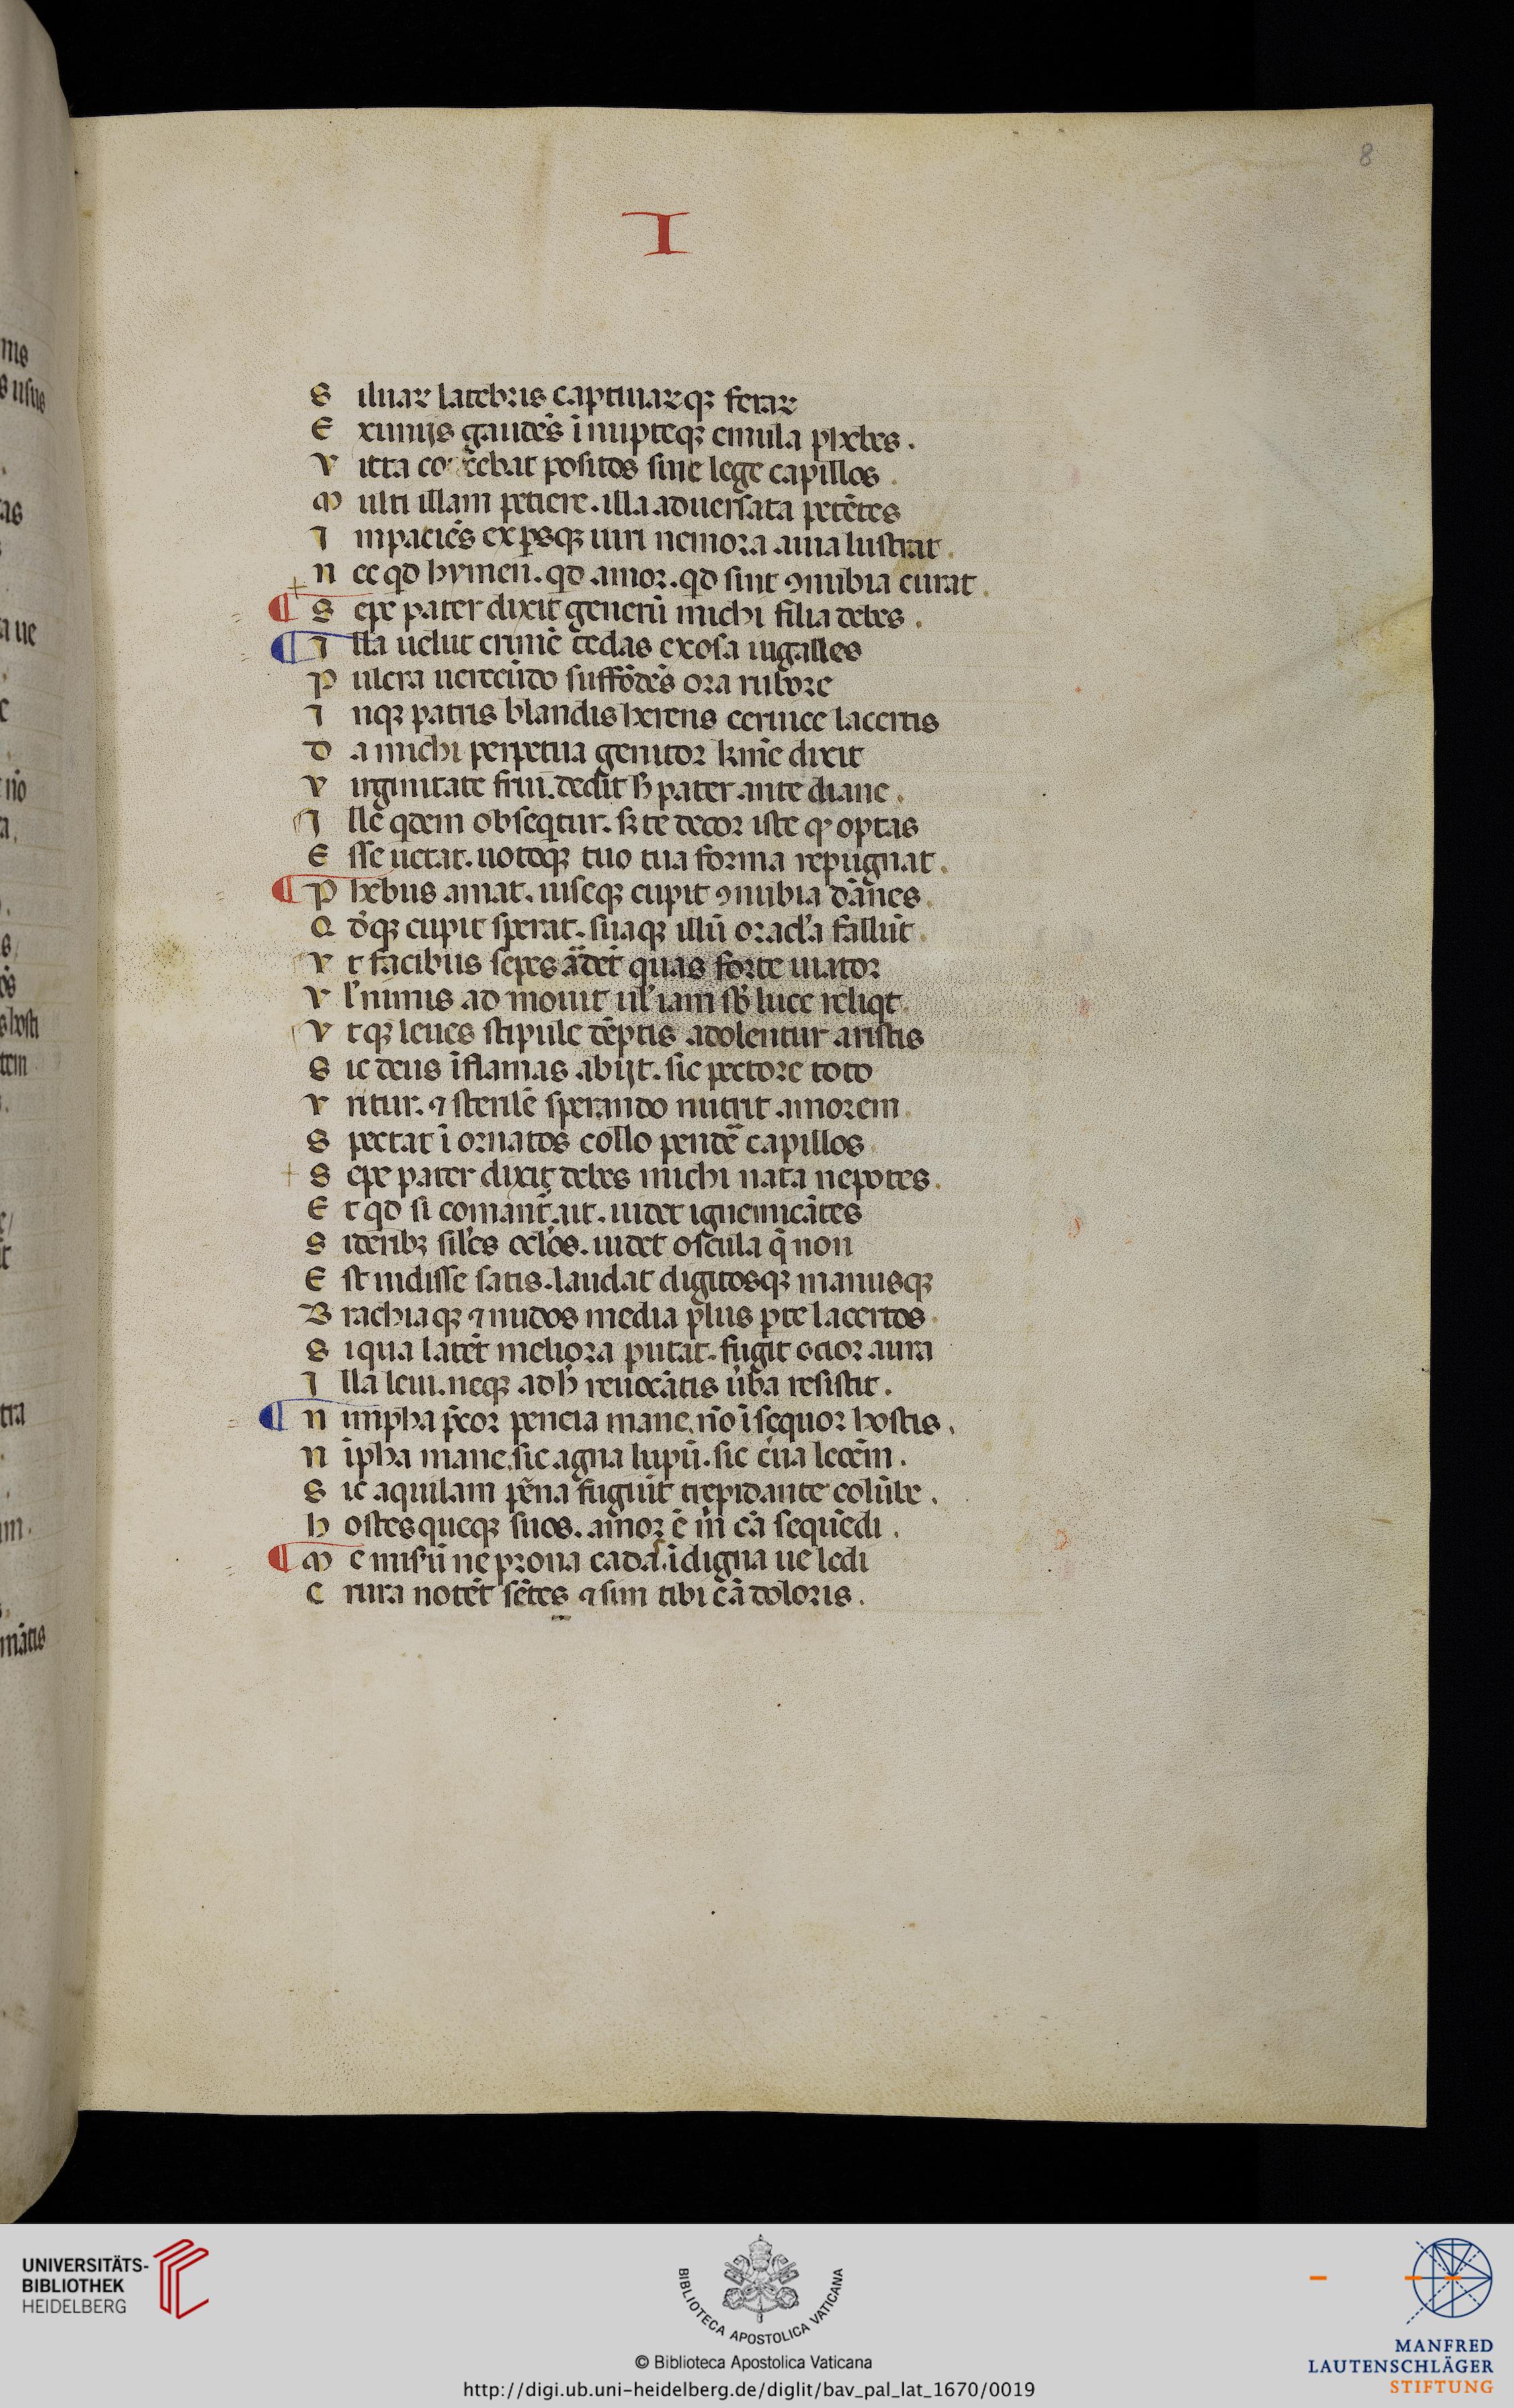 8
I
S iluaꝝ latebris captiuaꝝqꝫ feraꝝ
E xuuijs gaudēs īnupteqꝫ emula phebes.
V itta cohercebat positos sine lege capillos.
M ulti illam petiere. illa aduersata petētes
I npaciēs expersqꝫ uiri nemora auia lustrat.
N ec qd hymen. qd amor. qd sint ꝯnubia curat.
¶ S epe pater dixit generū michi filia debes.
¶ I lla uelut crimē tedas exosa iugalles
P ulcra uerecūdo suffōdēs ora rubore
I nqꝫ patris blandis herens ceruice lacertis
D a michi perpetua genitor kmē dixit
V irginitate frui. dedit h̄ pater ante diane.
I lle qdem obseqtur. sꝫ te decor iste qͦ optas
E sse uetat. uotoqꝫ tuo tua forma repugnat.
¶ P hebus amat. uiseqꝫ cupit ꝯnubia dānes.
Q dqꝫ cupit sperat. suaqꝫ illū oracl'a fallūt.
V t facibus sepes ādēt quas forte uiator
V l' nimis ad mouit ul' iam sb̄ luce reliqt.
V tqꝫ leues stipule dēptis adolentur aristis
S ic deus īflamas abijt. sic pectore toto
V ritur. ⁊ sterilē sperando nutrit amorem.
S pectat īornatos collo pendē capillos.
S epe pater dixit debes michi nata nepotes.
E t qd si comant᷑. ait. uidet igne micātes
S ideribꝫ sil'es ocl'os. uidet oscula q̄ non
E st uidisse satis. laudat digitosqꝫ manusqꝫ
B rachiaqꝫ ⁊ nudos media plus ꝑte lacertos.
S i qua latēt meliora putat. fugit ocior aura
I lla leui. neqꝫ ad h̄ reuocātis ūba resistit.
¶ N impha p̄cor peneia mane. nō īsequor hostis.
N īpha mane. sic agna lupū. sic cēua leoēm.
S ic aquilam pēna fugiūt trepidante colūbe.
H ostes queqꝫ suos. amor ē m̄ cā sequēdi.
¶ M e misū ne prona cada. īdigna ue ledi
C rura notēt sētes ⁊ sim tibi cā doloris.
UNIVERSITÄTS-
BIBLIOTHEK
HEIDELBERG
BIBLIOTECA APOSTOLICA VATICANA
© Biblioteca Apostolica Vaticana
http://digi.ub.uni-heidelberg.de/diglit/bav_pal_lat_1670/0019
MANFRED
LAUTENSCHLÄGER
STIFTUNG